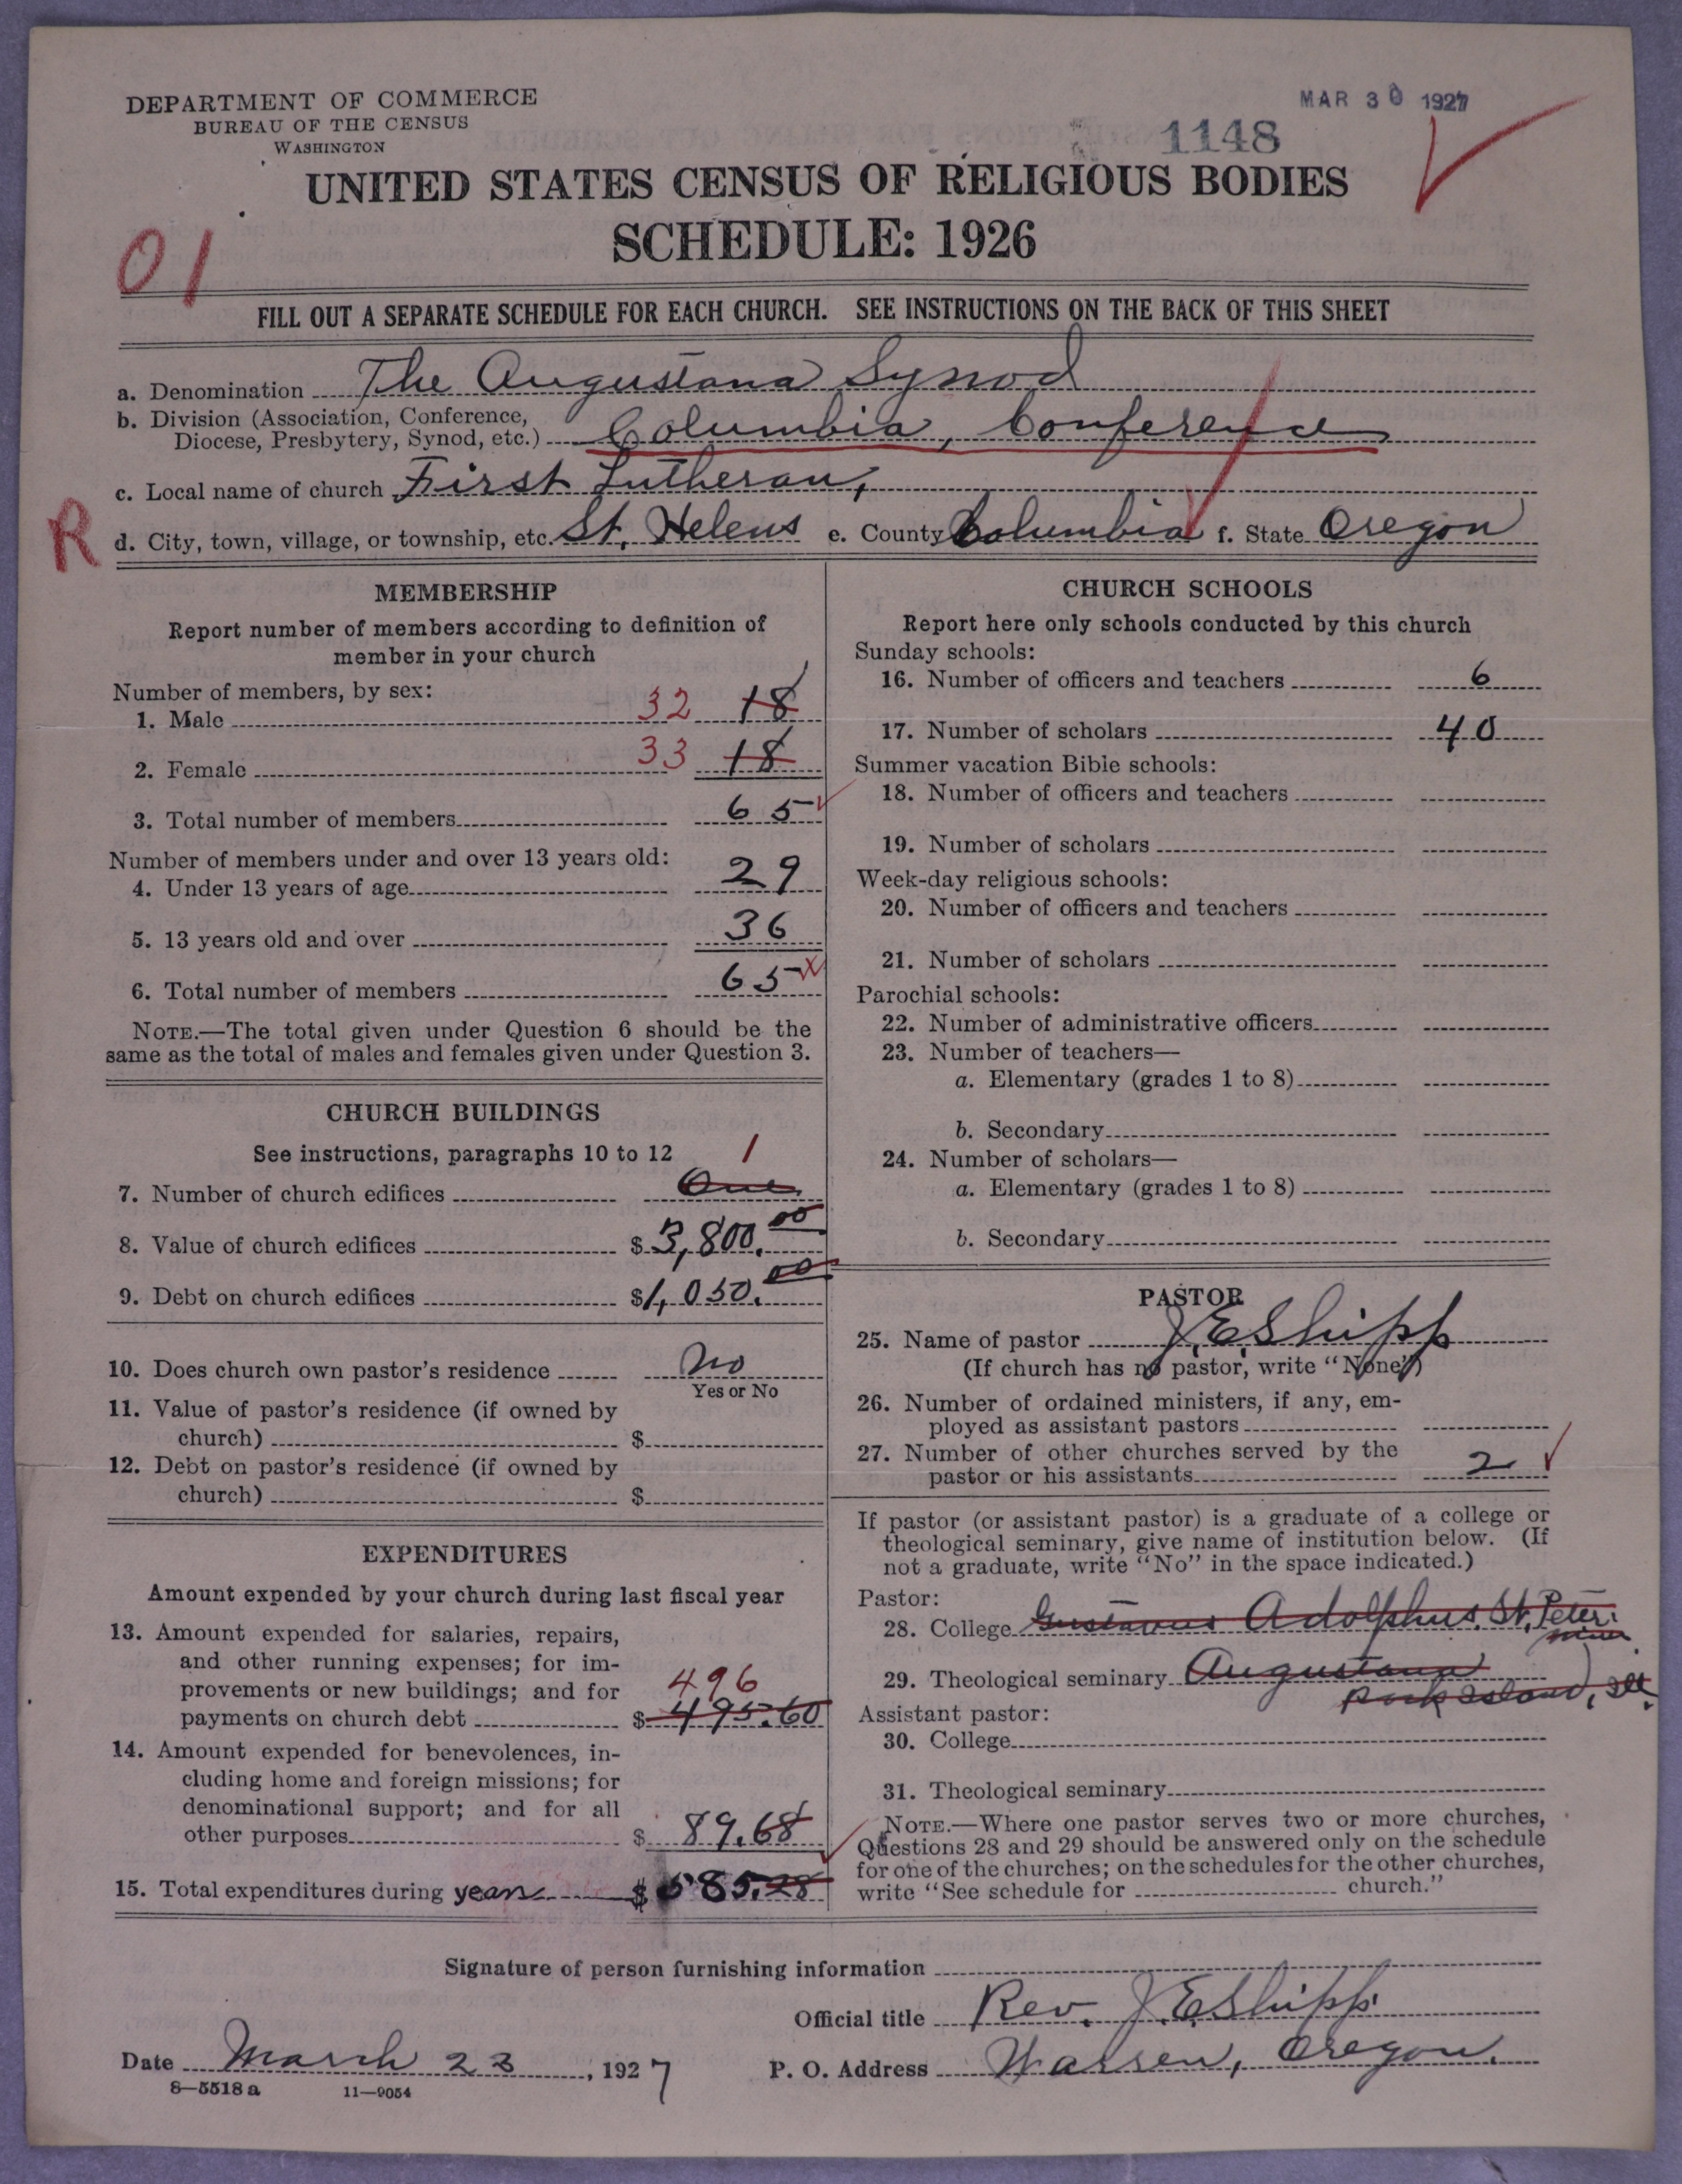 DEPARTMENT OF COMMERCE
BUREAU OF THE CENSUS
WASHINGTON
MAR 30 1927
1148
UNITED STATES CENSUS OF RELIGIOUS BODIES
SCHEDULE: 1926
01
FILL OUT A SEPARATE SCHEDULE FOR EACH CHURCH. SEE INSTRUCTIONS ON THE BACK OF THIS SHEET
a. Denomination The Augustana Synod
b. Division (Association, Conference,
Diocese, Presbytery, Synod, etc.) Columbia, Conference
c. Local name of church First Lutheran,
R
d. City, town, village, or township, etc. St. Helens e. County Columbia f. State Oregon
MEMBERSHIP
Report number of members according to definition of
member in your church
Number of members, by sex:
1. Male 32 18
2. Female 33 18
3. Total number of members 65
Number of members under and over 13 years old:
4. Under 13 years of age 29
5. 13 years old and over 36
6. Total number of members 65
NOTE.—The total given under Question 6 should be the
same as the total of males and females given under Question 3.
CHURCH BUILDINGS
See instructions, paragraphs 10 to 12 1
7. Number of church edifices One
8. Value of church edifices $ 3,800.00
9. Debt on church edifices $1,050.00
10. Does church own pastor's residence No
Yes or No
11. Value of pastor's residence (if owned by
church) $
12. Debt on pastor's residence (if owned by
church) $
EXPENDITURES
Amount expended by your church during last fiscal year
13. Amount expended for salaries, repairs,
and other running expenses; for im-
provements or new buildings; and for 496
payments on church debt $ 495.60
14. Amount expended for benevolences, in-
cluding home and foreign missions; for
denominational support; and for all
other purposes $ 89.68
15. Total expenditures during year $ 585.28
CHURCH SCHOOLS
Report here only schools conducted by this church
Sunday schools:
16. Number of officers and teachers 6
17. Number of scholars 40
Summer vacation Bible schools:
18. Number of officers and teachers
19. Number of scholars
Week-day religious schools:
20. Number of officers and teachers
21. Number of scholars
Parochial schools:
22. Number of administrative officers
23. Number of teachers—
a. Elementary (grades 1 to 8)
b. Secondary
24. Number of scholars—
a. Elementary (grades 1 to 8)
b. Secondary
PASTOR
25. Name of pastor J. E. Shipp
(If church has no pastor, write "None")
26. Number of ordained ministers, if any, em-
ployed as assistant pastors
27. Number of other churches served by the
pastor or his assistants 2
If pastor (or assistant pastor) is a graduate of a college or
theological seminary, give name of institution below. (If
not a graduate, write "No" in the space indicated.)
Pastor:
28. College Gustavus Adolphus. St. Peter.
Minn.
29. Theological seminary Augustana
Rock Island, Ill.
Assistant pastor:
30. College
31. Theological seminary
NOTE.—Where one pastor serves two or more churches,
Questions 28 and 29 should be answered only on the schedule
for one of the churches; on the schedules for the other churches,
write "See schedule for church."
Signature of person furnishing information
Official title Rev. J. E. Shipp.
Date March 23, 1927 P. O. Address Warren, Oregon.
8—5518 a 11—9054